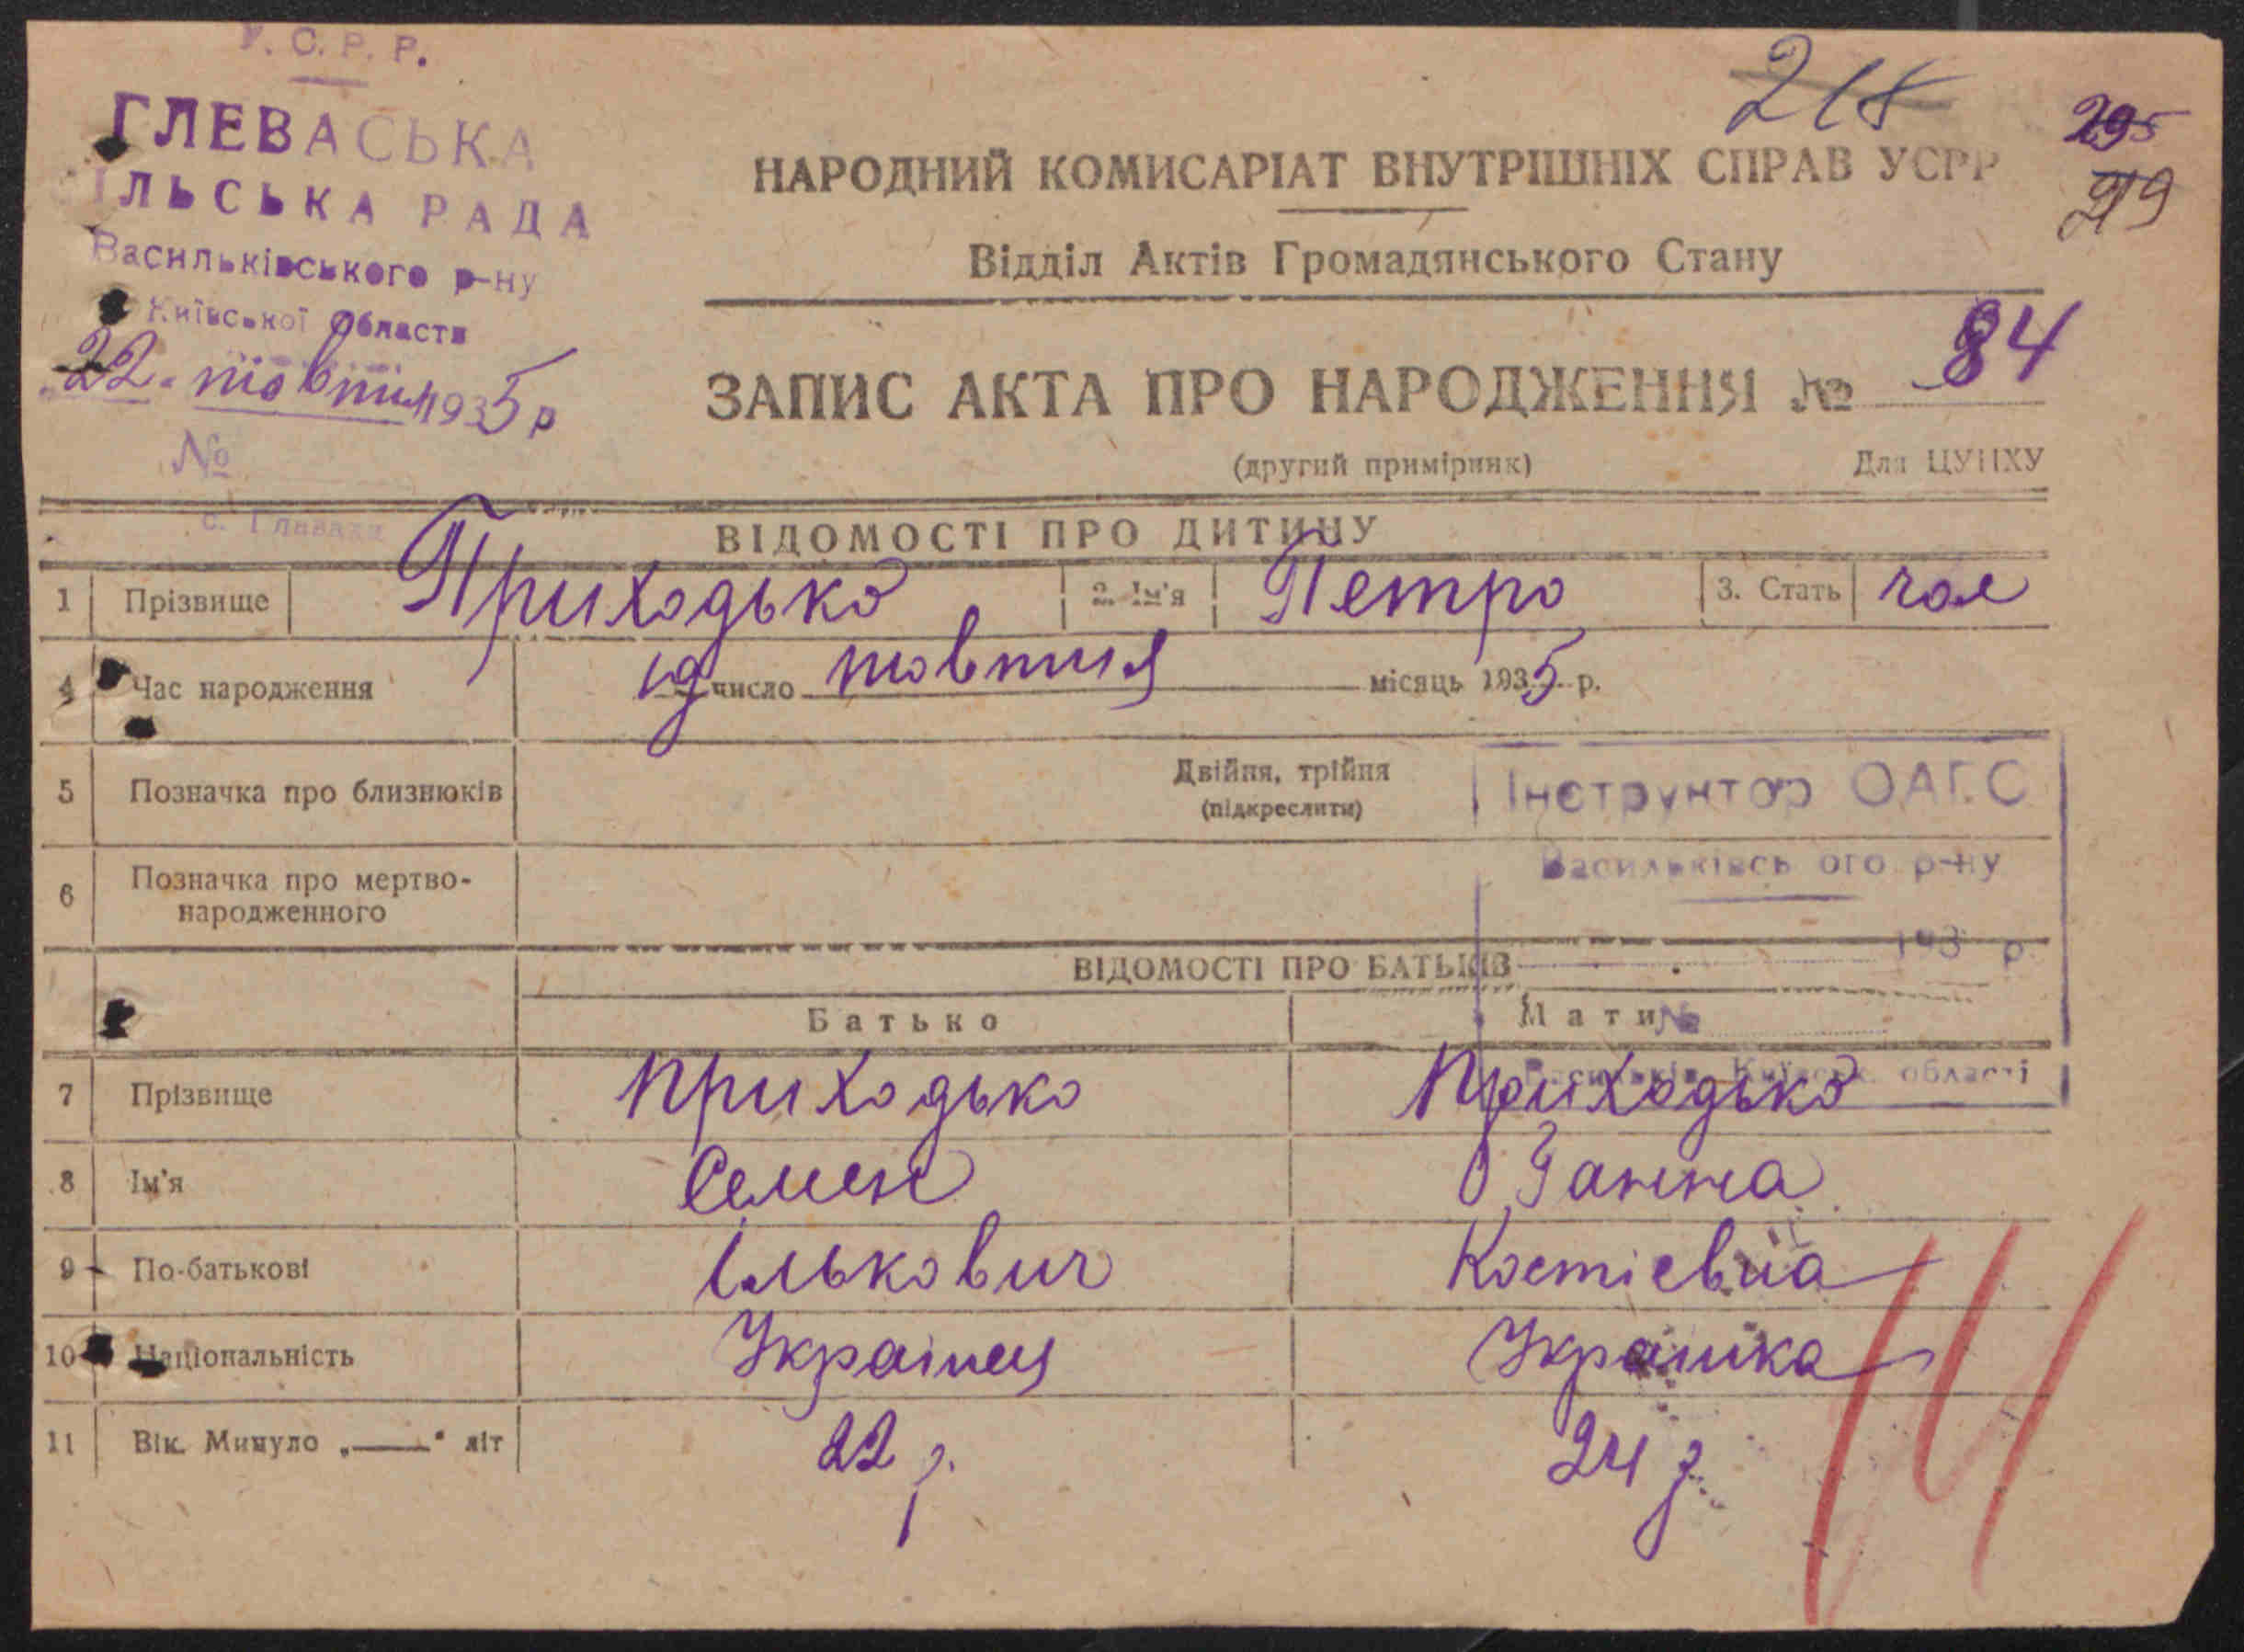 У. С. Р. Р.
ГЛЕВАСЬКА
ІЛЬСЬКА РАДА
Васильківського р-ну
Київської Области
22 жовтня 1935 р
№
с. Глеваха
218
295
НАРОДНИЙ КОМИСАРІАТ ВНУТРІШНІХ СПРАВ УСРР
Відділ Актів Громадянського Стану
ЗАПИС АКТА ПРО НАРОДЖЕННЯ № 84
(другий примірник) Для ЦУНХУ
ВІДОМОСТІ ПРО ДИТИНУ
1 Прізвище Приходько 2. Ім'я Петро 3. Стать чол
4 Час народження 19 число жовтня місяць 1935 р.
5 Позначка про близнюків Двійня, трійня
(підкреслити)
Інструктор ОАГС
Васильківсь ого р-ну
193 р.
6 Позначка про мертво-
народженного
ВІДОМОСТІ ПРО БАТЬКІВ
Батько Мати
№
Васильків Київськ. області
7 Прізвище Приходько Приходько
8 Ім'я Семен Ганна
9 По-батькові Ількович Костієвна
10 Національність Українец Українка
11 Вік. Минуло „——" літ 22 р. 24 р.